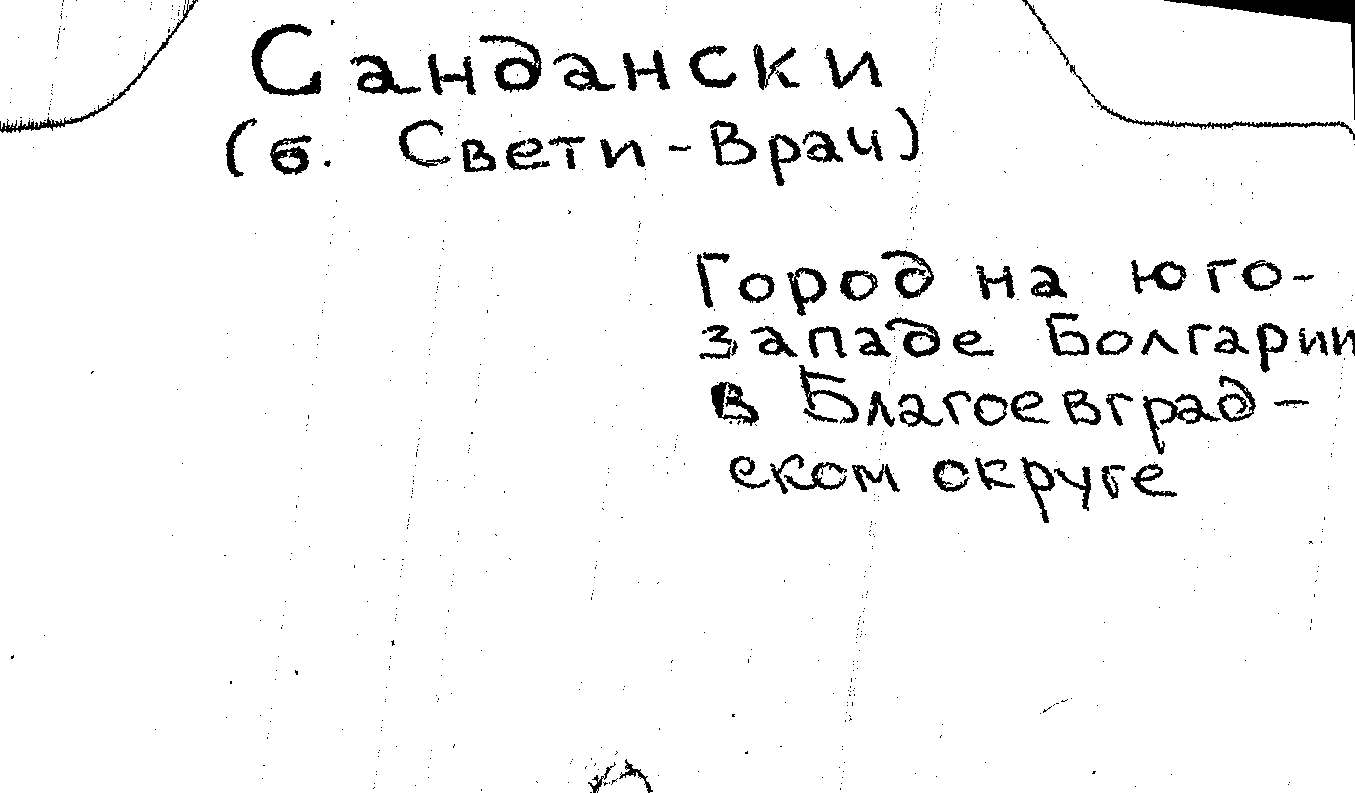 Сандански
(б. Свети-Врач)
Город на юго-
западе Болгарии
в Благоевград-
ском округе